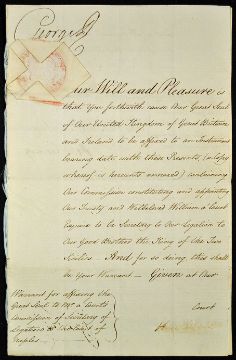 George R
Our Will and Pleasure is
that You forthwith cause Our Great Seal
of Our United Kingdom of Great Britain
and Ireland to be affixed to an Instrument
bearing date with these Presents, (a Copy
whereof is hereunto annexed) containing
Our Commission constituting and appointing
Our Trusty and Welbeloved William a Court
Esquire to be Secretary to Our Legation to
Our Good Brother the King of the Two
Sicilies – And for so doing, this shall
be Your Warrant – Given at Our
Court
Warrant for affixing the
Great Seal to Mr. a Court's
Commission of Secretary of
Legation at the Court of
Naples